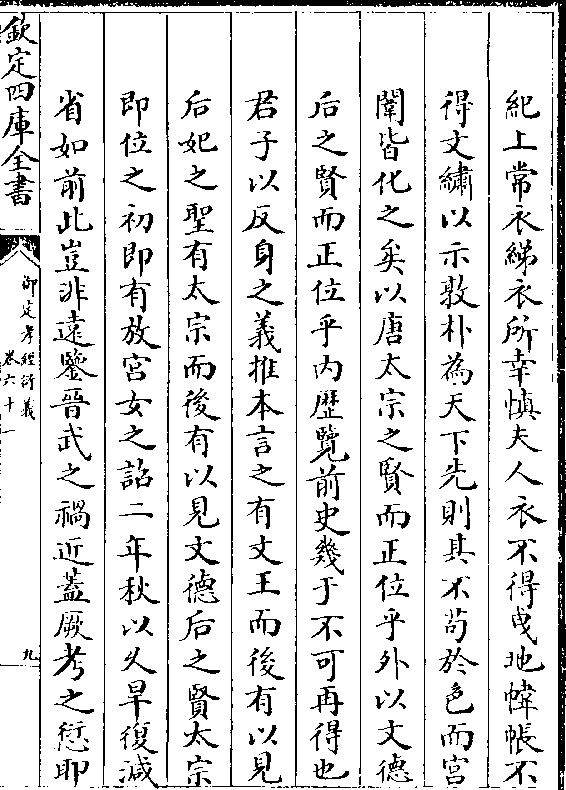 紀上常衣綈衣所幸慎夫人衣不得曵地幃帳不
得文繡以示敦朴為天下先則其不苟於色而宮
闈皆化之矣以唐太宗之賢而正位乎外以文德
后之賢而正位乎内歴覽前史幾于不可再得也
君子以反身之義推本言之有文王而後有以見
后妃之聖有太宗而後有以見文德后之賢太宗
即位之初即有放宮女之詔二年秋以久旱復減
省如前此豈非遠鑒晉武之禍近蓋厥考之愆耶
欽定四庫全書
御定孝經衍義
卷六十一
九